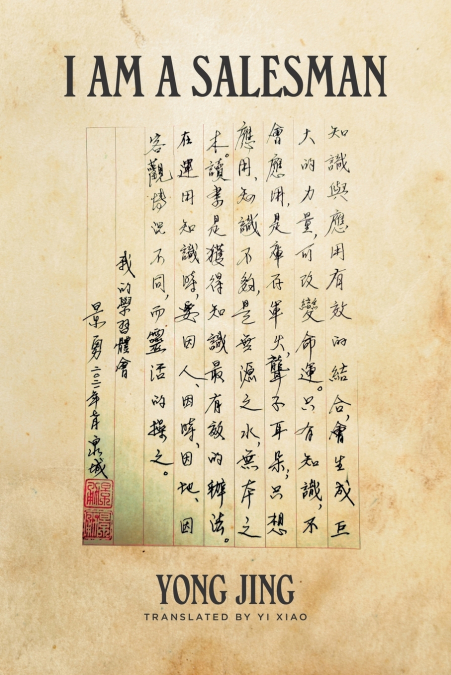 I AM A SALESMAN
知識與應用有效的結合,會生成巨
大的力量,可改變命運。只有知識,不
會應用,是庫存軍火,聾子耳朵,只想
應用,知識不夠,是無源之水,無本之
木。讀書是獲得知識最有效的辦法。
在運用知識時,要因人、因時、因地、因
客觀情況不同,而靈活的操之。
我的學習體會
景勇 泉城
YONG JING
TRANSLATED BY YI XIAO